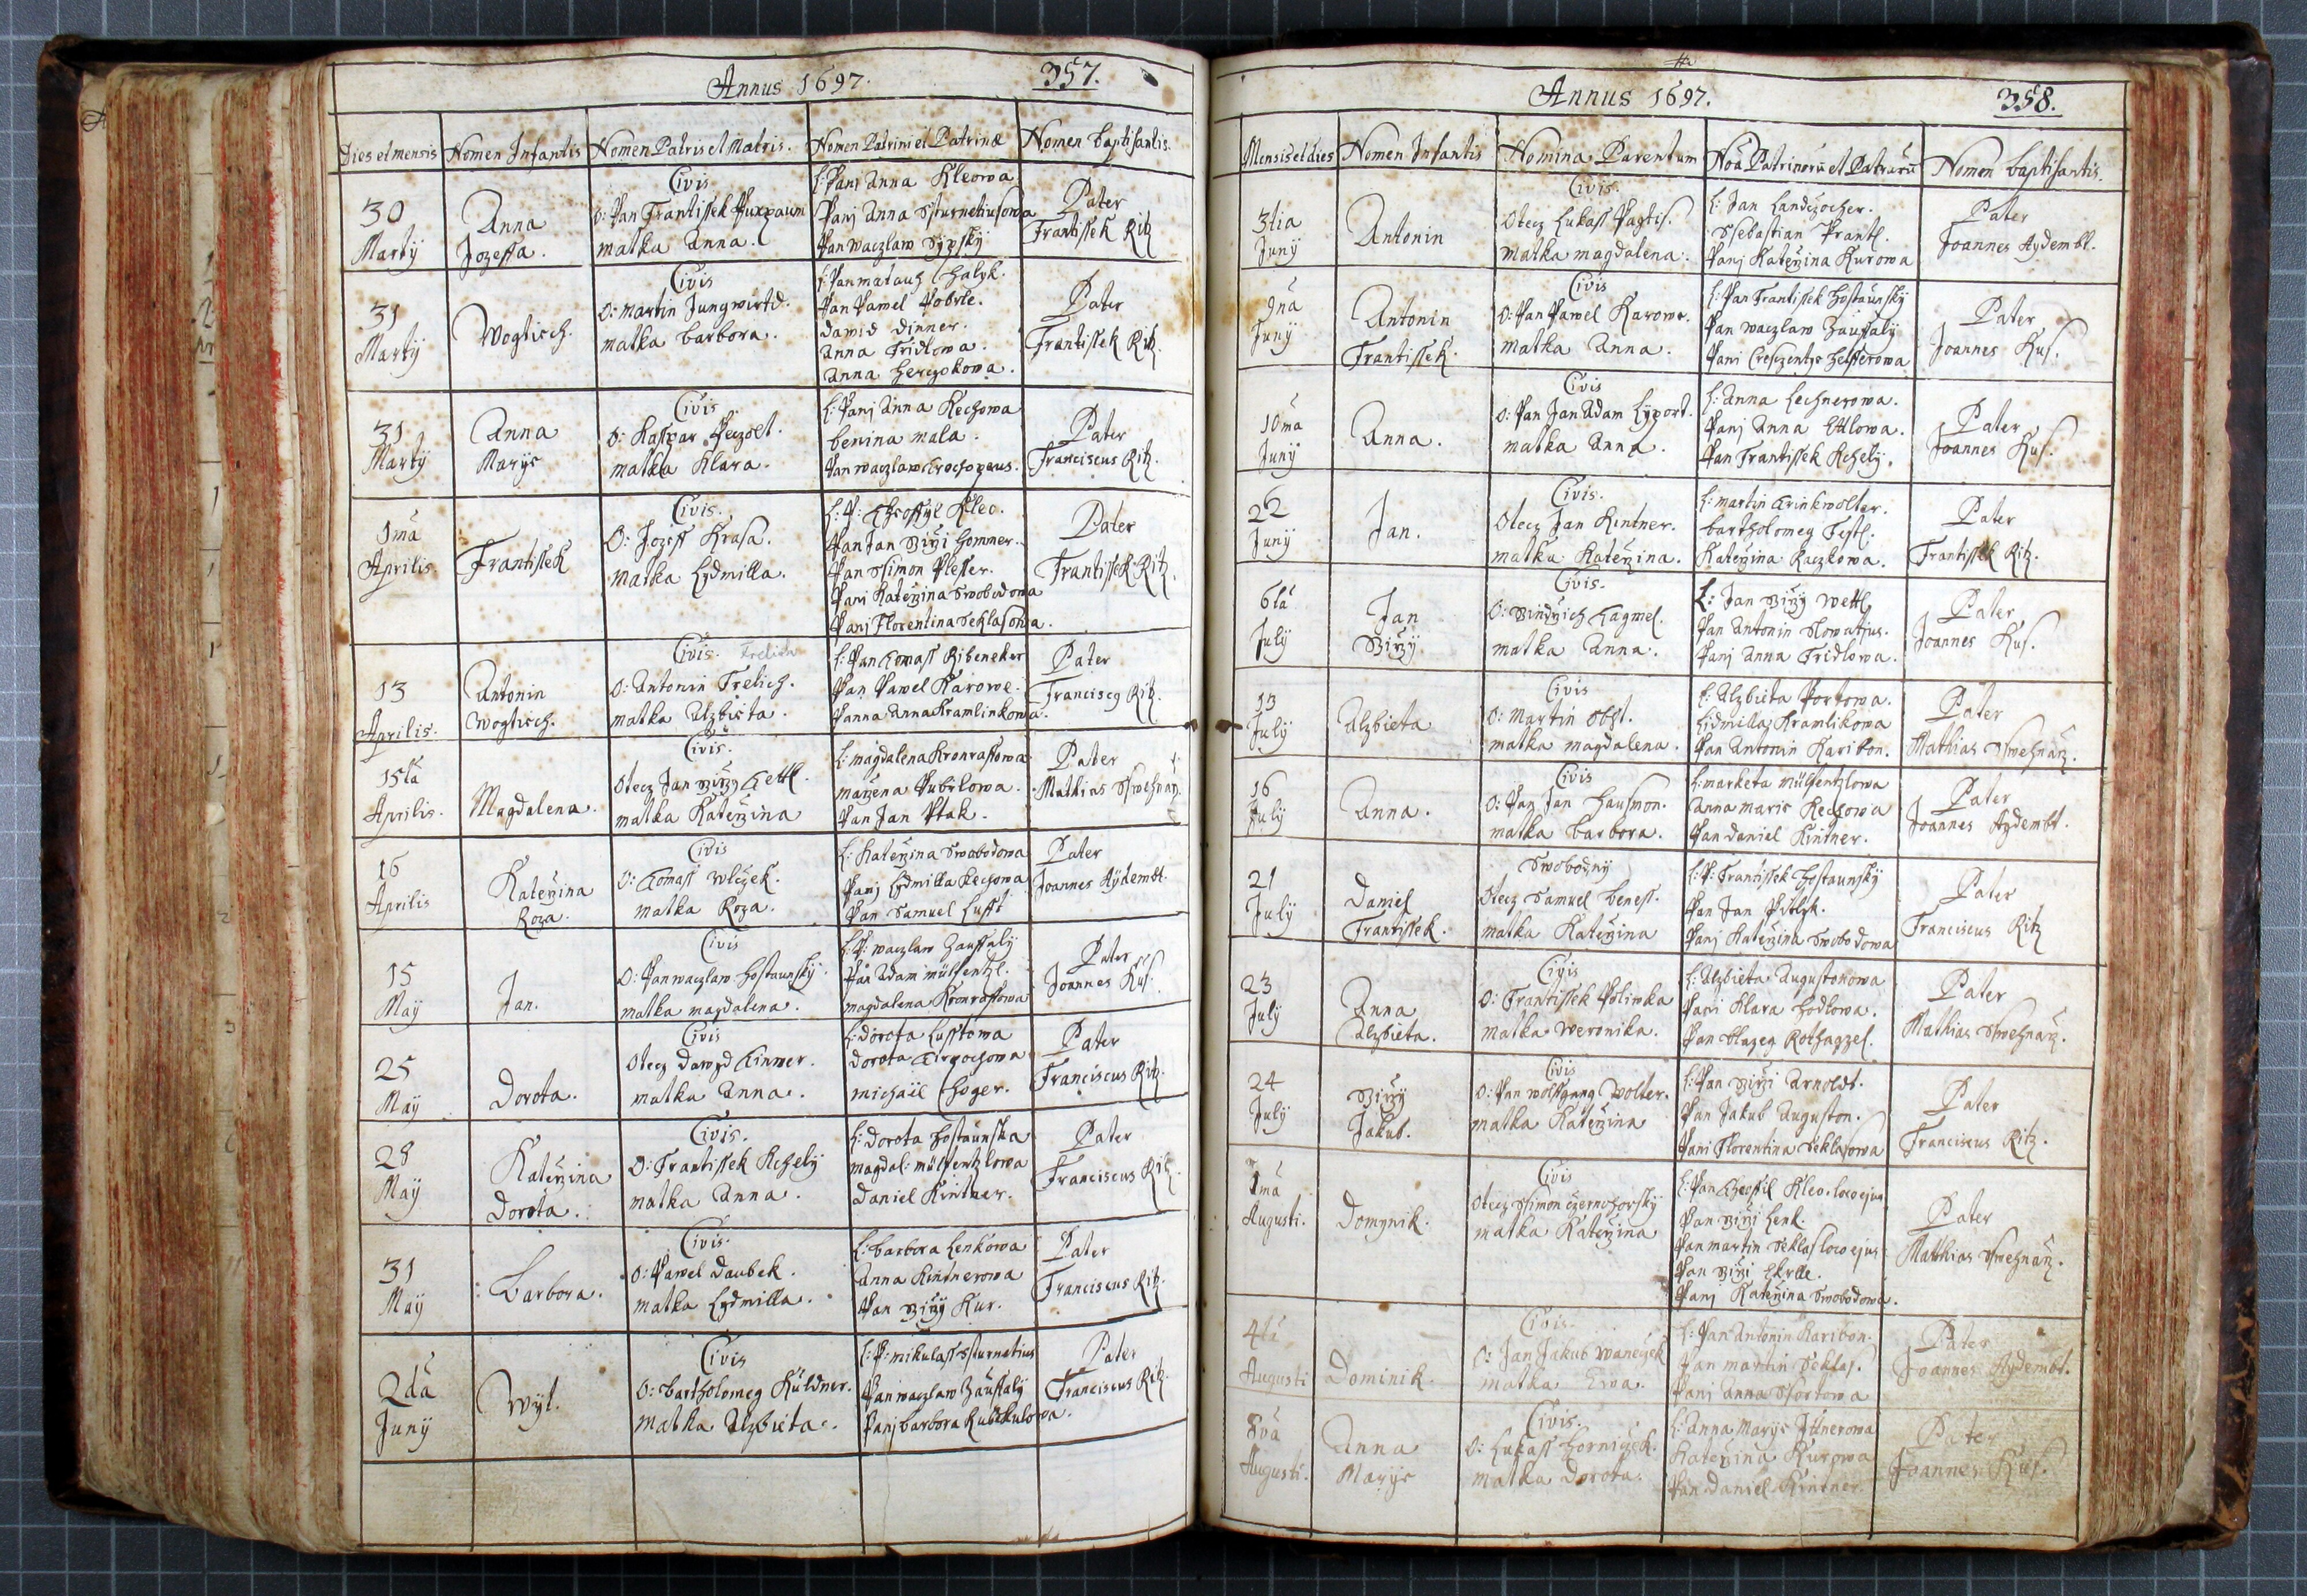 Annus 1697. 357.
Dies et mensis Nomen Infantis Nomen Patris et Matris. Nomen Patrini et Patrinæ Nomen baptisantis.
30
Martÿ
Anna
Jozeffa.
Civis
O: Pan Frantissek Puxpaum
matka Anna.
L: Pani Anna Kleowa
Panj Anna Ssturnetiusowa
Pan waczlaw Sÿpskÿ
Pater
Frantissek Ritz
31
Martÿ
Wogtiech.
Civis
O: Martin Jungwirtd.
matka barbora.
L: Pan matauss
Pan Pawel Pobrle.
dawid dinner.
Anna Fridlowa.
Anna herczokowa.
Pater
Frantissek Ritz.
31
Martÿ
Anna
Marÿe
Civis
O: Kasspar
matka Klara.
L: Panj Anna Kechowa
benina mala.
Pan waczlaw
Pater
Franciscus Ritz.
1ma
Aprilis
Frantissek
Civis.
O: Jozeff Krasa.
Matka Lydmilla.
L: P: Theoffyl Kleo.
Pan Jan Girzi hommer.
Pan Ssimon Plesser.
Pani Katerzina Swobodowa
Panj Florentina Seklasowa.
Pater
Frantissek Ritz.
13
Aprilis.
Antonin
Wogtiech.
Civis.
O: Antonin Frelich.
matka Alzbieta.
L: Pan Tomass Ribeneker
Pan Pawel Karowe.
Panna Anna Kramlinkowa.
Pater
Franciscg Ritz.
15ta
Aprilis.
Magdalena.
Civis.
Otecz Jan Girzy Tettl.
matka Katerzina
L: magdalena Kronrassowa
marzena Pubrlowa.
Pan Jan Ptak.
Pater
Mathias
16
Aprilis
Katerzina
Roza.
Civis
O: Tomass wlczek.
matka Roza.
L: Katerzina Swobodowa
Panj Lydmilla Kechowa
Pan Samuel Lufft
Pater
Joannes Aÿdembt.
15
Maÿ
Jan.
Civis
O: Pan waczlaw hostaunskÿ.
matka magdalena.
L: P: waczlaw Zaussalÿ
Pan Adam mülfentzl.
magdalena Kronrassowa
Pater
Joannes Kus.
25
Maÿ
Dorota.
Civis
Otecz dawyd Tinner.
matka Anna.
L: dorota Lufftowa
dorota
michaël hoger.
Pater
Franciscus Ritz.
28
Maÿ
Katerzina
Dorota.
Civis.
O: Frantissek Kchelÿ
matka Anna.
L: dorota hostaunska
magdal: mülfentzlowa
Daniel Kintner.
Pater
Franciscus Ritz.
31
Maÿ
Barbora.
Civis.
O: Pawel daubek.
matka Lydmilla.
L: barbora Lenkowa
Anna Kintnerowa
Pan Girzÿ Kur.
Pater
Franciscus Ritz.
2da
Junÿ
Wÿt.
Civis
O: bartholomeg Küldner.
Matka Alzbieta.
L: P: mikulass Ssturnetius
Pan waczlaw Zaussalÿ
Panj barbora Kubikulowa.
Pater
Franciscus Ritz.
Annus 1697. 358.
Mensis et dies Nomen Infantis Homina Parentum Noa Patrinoru et Patraru Nomen baptisantis.
3tia
Junÿ
Antonin
Civis.
Otecz Lukass
Matka magdalena.
L: Jan Landczocher.
Ssebastian Prantl.
Panj Katerzina Kurowa
Pater
Joannes Aydembt.
9na
Junÿ
Antonin
Frantissek.
Civis
O: Pan Pawel Karowe.
matka Anna.
L: Pan Frantissek hostaunskÿ
Pan waczlaw Zaussalÿ
Pani
Pater
Joannes Kus.
10ma
Junÿ
Anna.
Civis
O: Pan Jan Adam Lyport.
matka Anna.
L: Anna Lechnerowa.
Panj Anna Ettlowa.
Pan Frantissek Kchelÿ.
Pater
Joannes Kus.
22
Junÿ
Jan.
Civis.
Otecz Jan Kintner.
matka Katerzina.
L: martin Trinkwolter.
bartholomeg Festl.
Katerzina Kaczkowa.
Pater
Frantissek Ritz.
6ta
Julÿ
Jan
Girzÿ
Civis.
O: Gindrzich Tagmel.
matka Anna.
L: Jan Girzÿ Wettl
Pan Antonin Slowatius.
Panj Anna Fridlowa.
Pater
Joannes Kus.
13
Julÿ
Alzbieta
Civis
O: Martin Obst.
matka magdalena.
L: Alzbieta Portowa.
Lidmilla Kramlikowa
Pan Antonin Karibon.
Pater
Matthias
16
Julÿ
Anna.
Civis
O: Pan Jan hausmon.
matka barbora.
L: marketa mülfentzlowa
Anna Marie Kechowa
Pan daniel Kintner.
Pater
Joannes Aydembt.
21
Julÿ
Daniel
Frantissek.
Swobodnÿ
Otecz Samuel beness.
matka Katerzina
L: P: Frantissek hostaunskÿ
Pan Jan
Panj Katerzina Swobodowa
Pater
Franciscus Ritz
23
Julÿ
Anna
Alzbieta.
Civis
O: Frantissek Poliwka
Matka weronika.
L: Alzbieta Augustonowa
Pani Klara hodlowa.
Pan blazeg Rothagzel.
Pater
Mathias
24
Julÿ
Girzÿ
Jakub.
Civis
O: Pan wolffgang Wolter.
matka Katerzina
L: Pan Girzi Arnoldt.
Pan Jakub Auguston.
Pani Florentina Seklasowa
Pater
Franciscus Ritz.
1ma
Augusti.
Domynik.
Civis
Otecz Ssimon Czernohorskÿ
matka Katerzina
L: Pan Theoffil Kleo. loco ejus
Pan Girzi Lenk.
Pan martin Seklas loco ejus
Pan Girzi
Panj Katerzina Swobodowa.
Pater
Matthias
4ta
Augusti
Dominik.
Civis.
O: Jan Jakub Waneczek
matka Ewa.
L: Pan Antonin Karibon.
Pan martin Seklas.
Panj Anna
Pater
Joannes Aydembt.
8va
Augusti.
Anna
Marÿe
Civis.
O: Lukass horniczek.
matka dorota.
L: Anna Marÿe Ittnerowa
Katerzina Kurowa
Pan Daniel Kintner.
Pater
Joannes Kus.